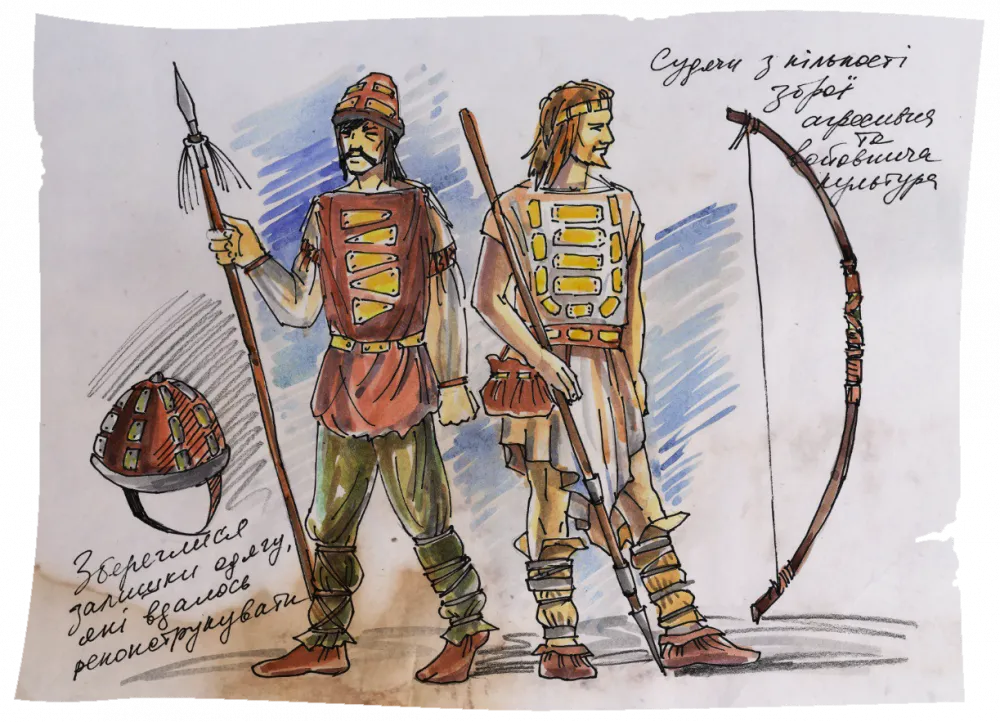 Судячи з кількості
зброї
агресивна
та
войовнича
культура
Збереглися
залишки одягу,
які вдалось
реконструювати